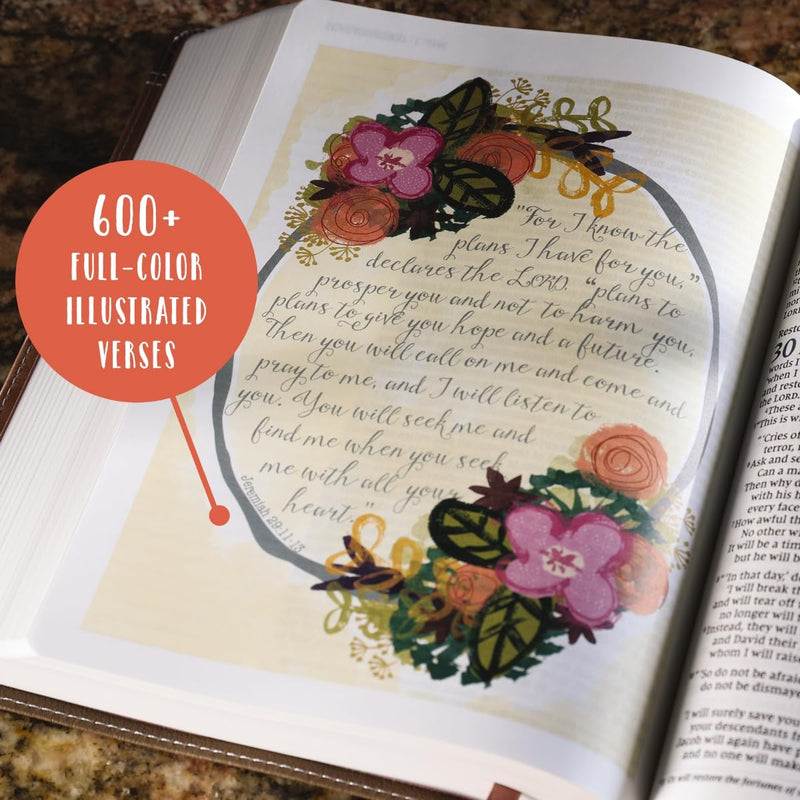 600+
FULL-COLOR
ILLUSTRATED
VERSES
"For I know the
plans I have for you,"
declares the LORD, "plans to
prosper you and not to harm you,
plans to give you hope and a future.
Then you will call on me and come and
pray to me, and I will listen to
you. You will seek me and
find me when you seek
me with all your
heart."
Jeremiah 29:11-13
Resto
30
words I
when I
and resto
the LORD.
These a
This is w
'Cries of
terror, n
Ask and se
Can a m
Then why d
with his h
every face
How awful th
No other w
It will be a tim
but he will b
"'In that day,' d
'I will break th
and will tear off t
no longer will f
Instead, they will
and David their
whom I will raise
'So do not be afrai
do not be dismaye
'I will surely save you
your descendants fr
Jacob will again have p
and no one will mak
will restore the fortunes of